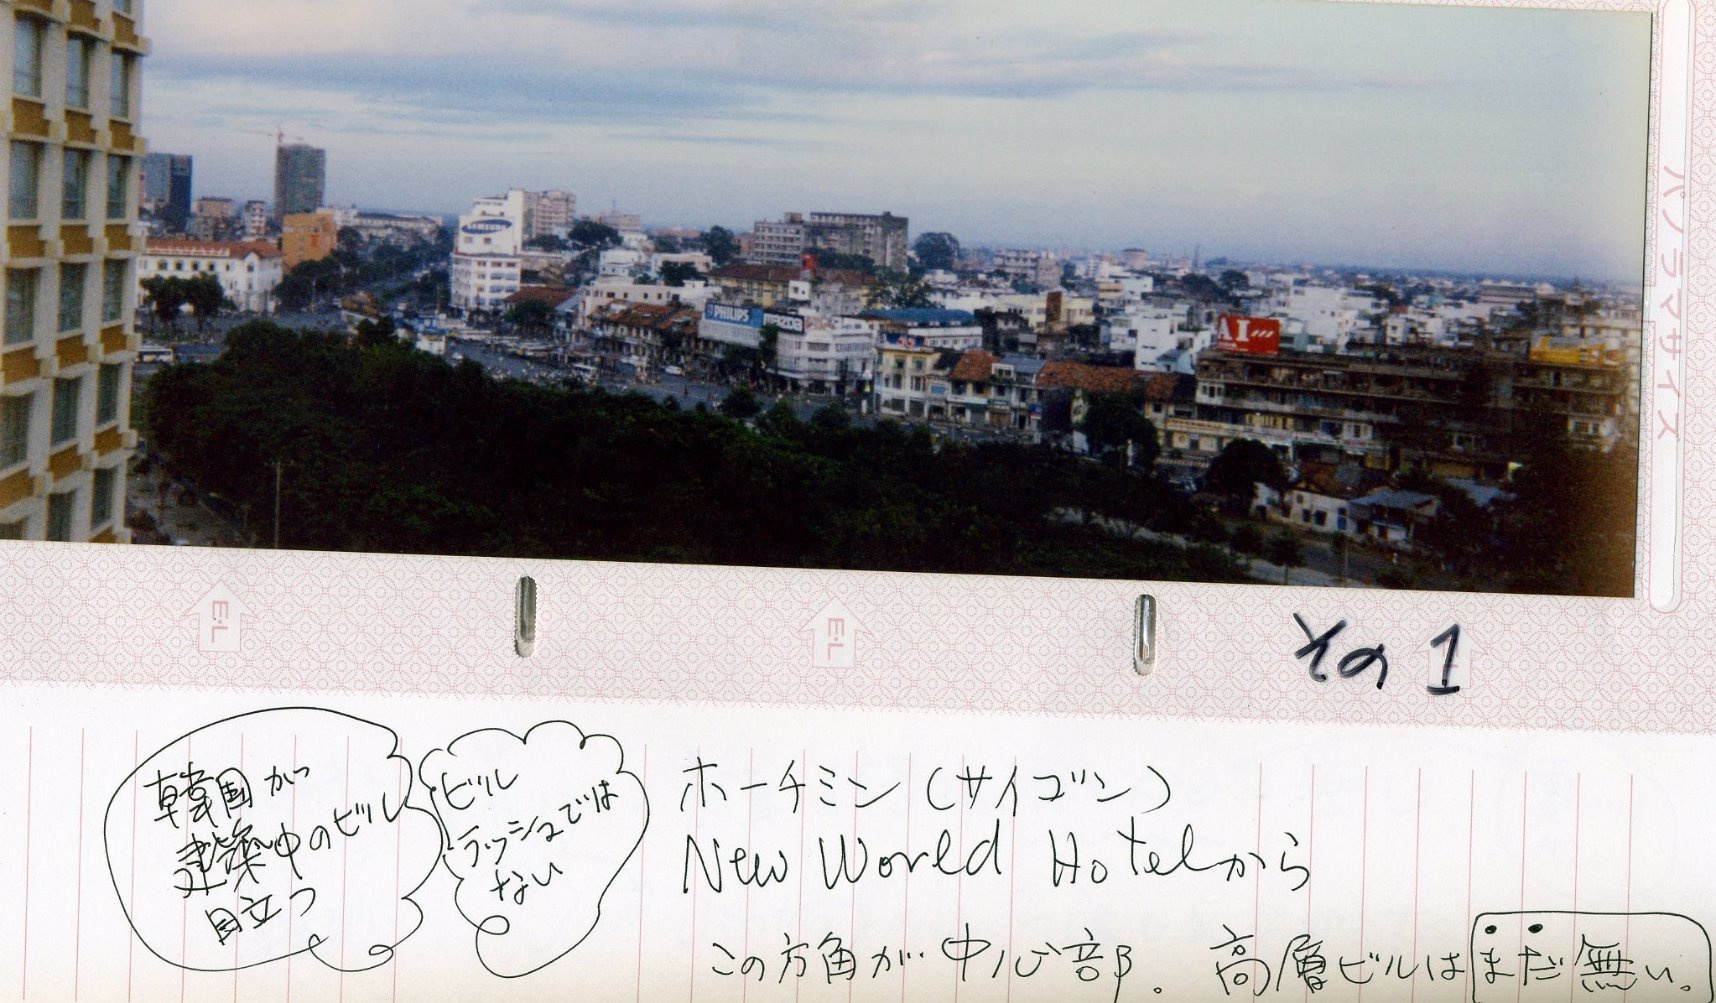 SAMSUNG
PHILIPS
AI
パノラマサイズ
E・L
E・L
その1
韓国が
建築中のビル
目立つ
ビル
ラッシュでは
ない
ホーチミン(サイゴン)
New World Hotelから
この方角が中心部。高層ビルはまだ無い。